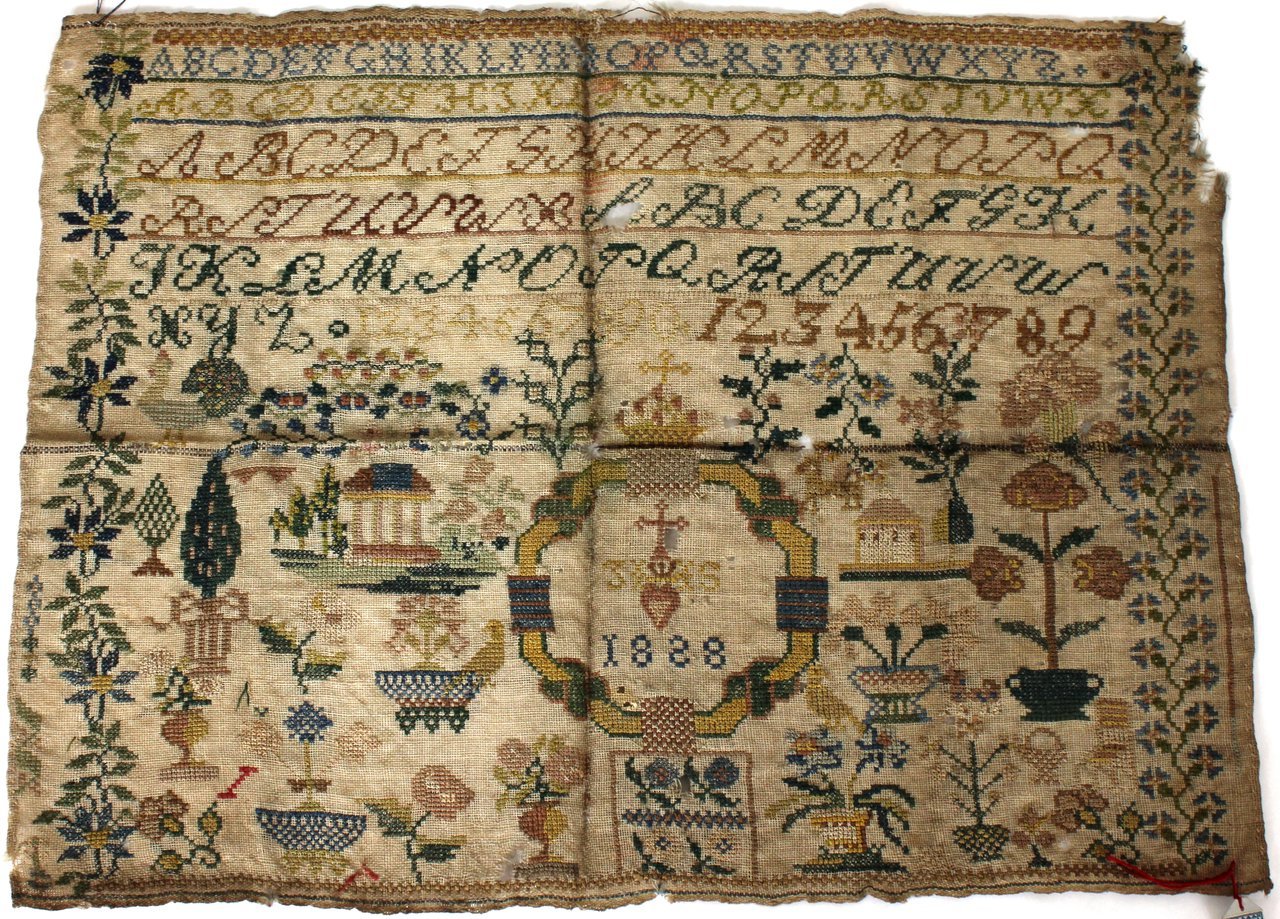 ABCDEFGHIKLMNOPQRSTUVWXYZ
ABCDEFGHIKLMNOPQRSTUVWX
ABCDEFGHIKLMNOPQ
RSTUVWX ABCDEFGH
IKLMNOPQRSTUVW
XYZ 1234567890 123456789
1888